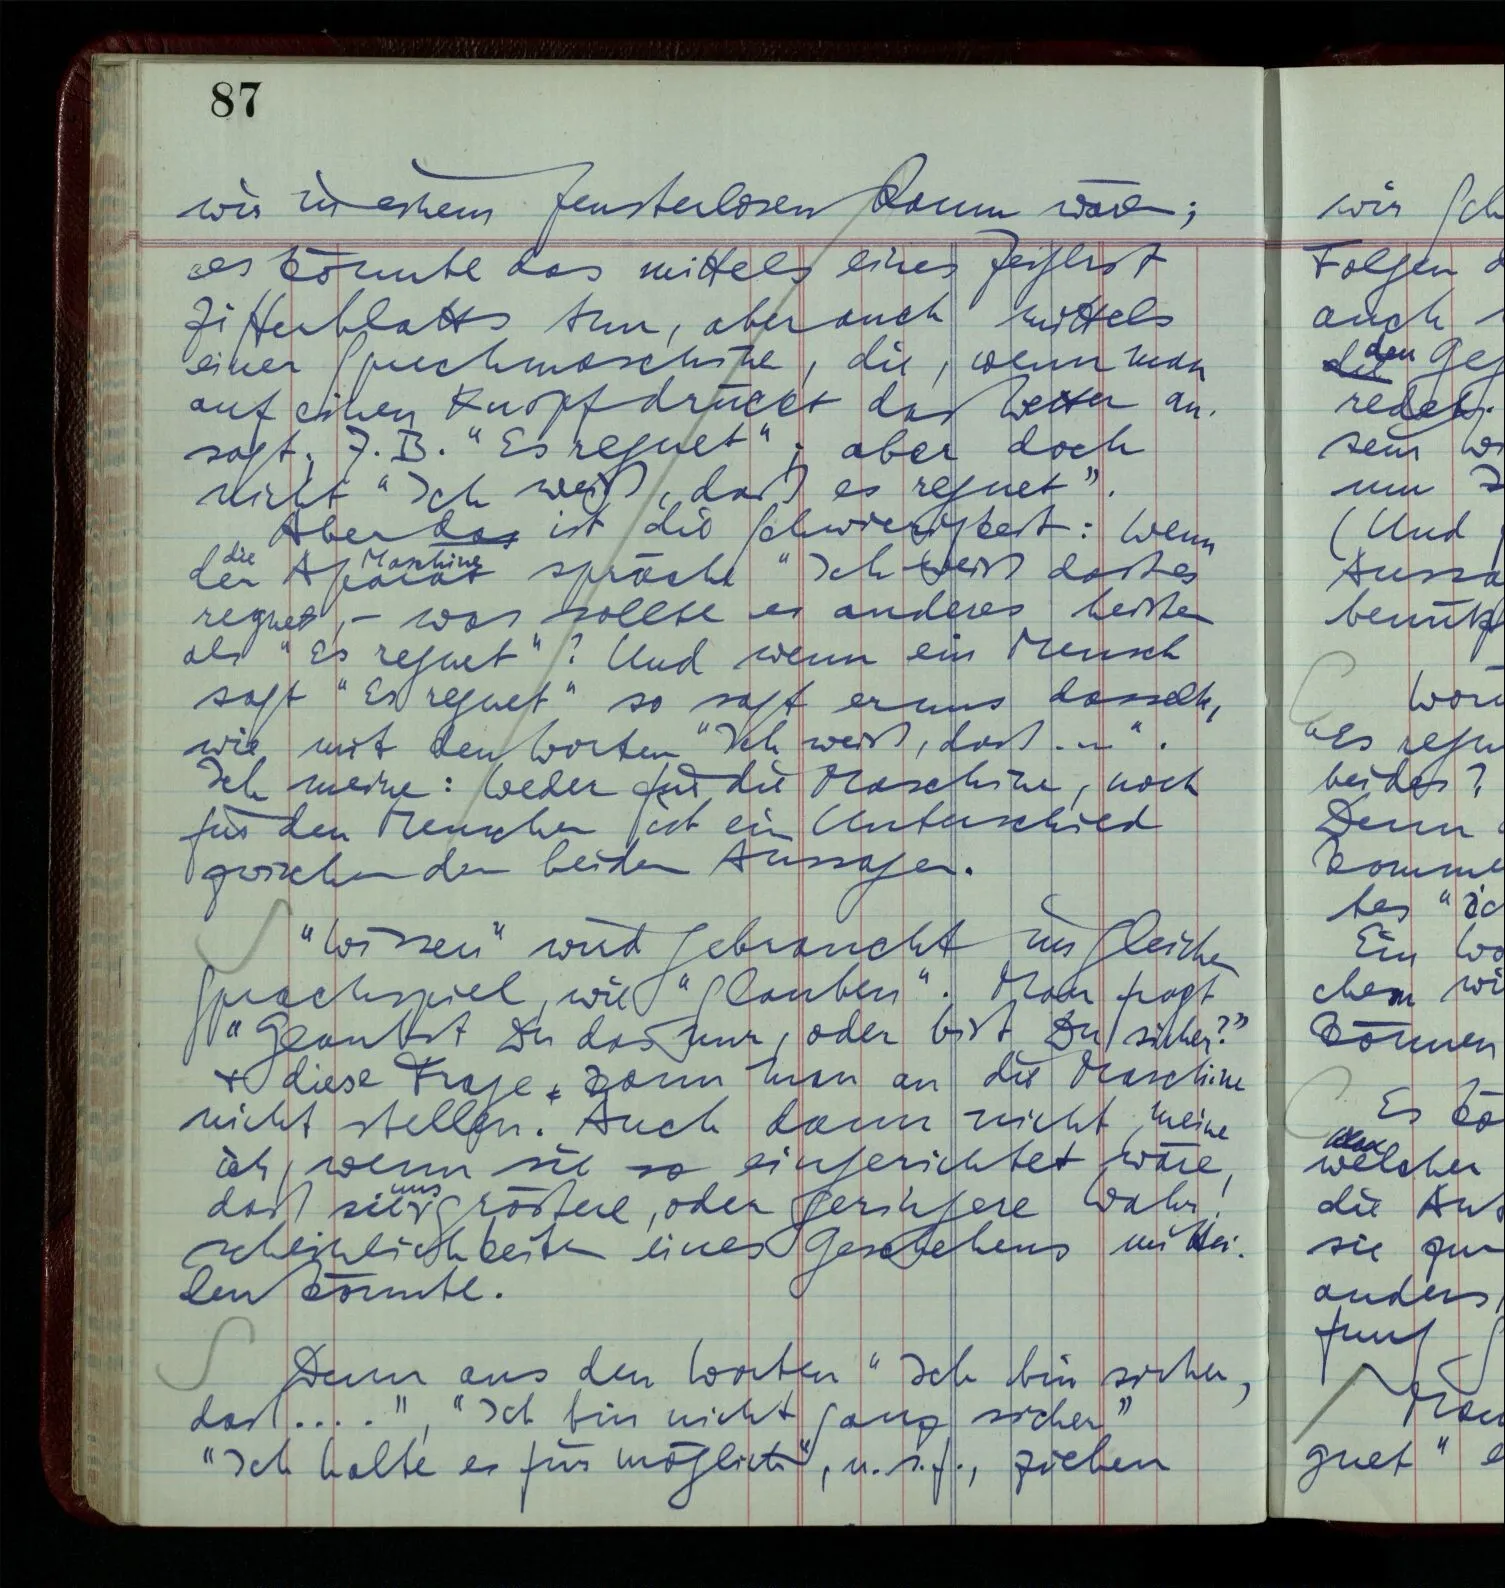 87
wir in einem fensterlosen Raum wären;
es könnte das mittels eines Zeigers +
Zifferblatts tun, aber auch mittels
einer Sprechmaschine, die, wenn man
auf einen Knopf drückt das Wetter an-
sagt, z.B. "Es regnet"; aber doch
nicht "Ich weiß, daß es regnet".
Aber das ist die Schwierigkeit: Wenn
die Maschine
der Aparat spräche "Ich weiß daß es
regnet, – was sollte es anderes heißen
als "Es regnet"? Und wenn ein Mensch
sagt "Es regnet" so sagt er uns dasselbe,
wie mit den Worten "Ich weiß, daß ...".
Ich meine: Weder für die Maschine, noch
für den Menschen ist ein Unterschied
zwischen den beiden Aussagen.
"Wissen" wird gebraucht im gleichen
Sprachspiel, wie "Glauben". Man fragt
"Glaubst Du das nur, oder bist Du sicher?"
+ diese Frage kann man an die Maschine
nicht stellen. Auch dann nicht, meine
ich, wenn sie so eingerichtet wäre,
daß sie uns größere, oder geringere Wahr-
scheinlichkeiten eines Geschehens mittei-
len könnte.
Denn aus den Worten "Ich bin sicher,
daß....", "Ich bin nicht ganz sicher"
"Ich halte es für möglich", u.s.f., ziehen
wir
Folgen
auch
den
die
redet.
sein
um
(Und
benütz
Es regn
beides?
Denn
komme
Ein
können
Es kö
welcher
die Ant
sie zur
anders,
gnet"